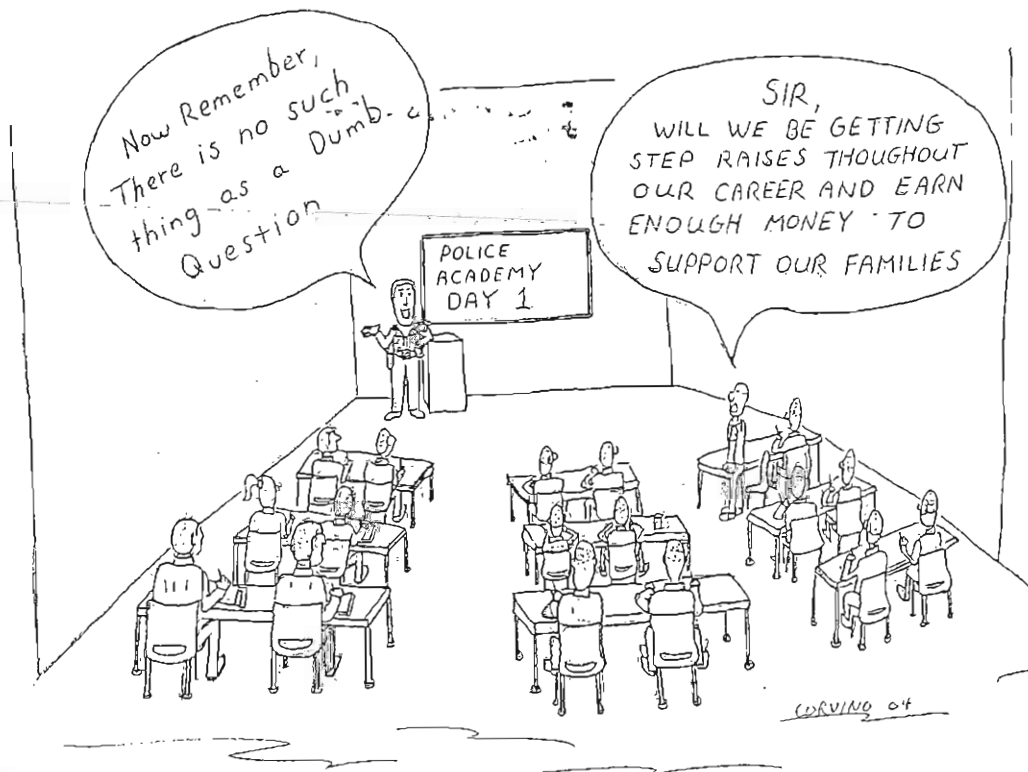 Now Remember,
There is no such
thing as a Dumb
Question
POLICE
ACADEMY
DAY 1
SIR,
WILL WE BE GETTING
STEP RAISES THOUGHOUT
OUR CAREER AND EARN
ENOUGH MONEY TO
SUPPORT OUR FAMILIES
CORVINO 04